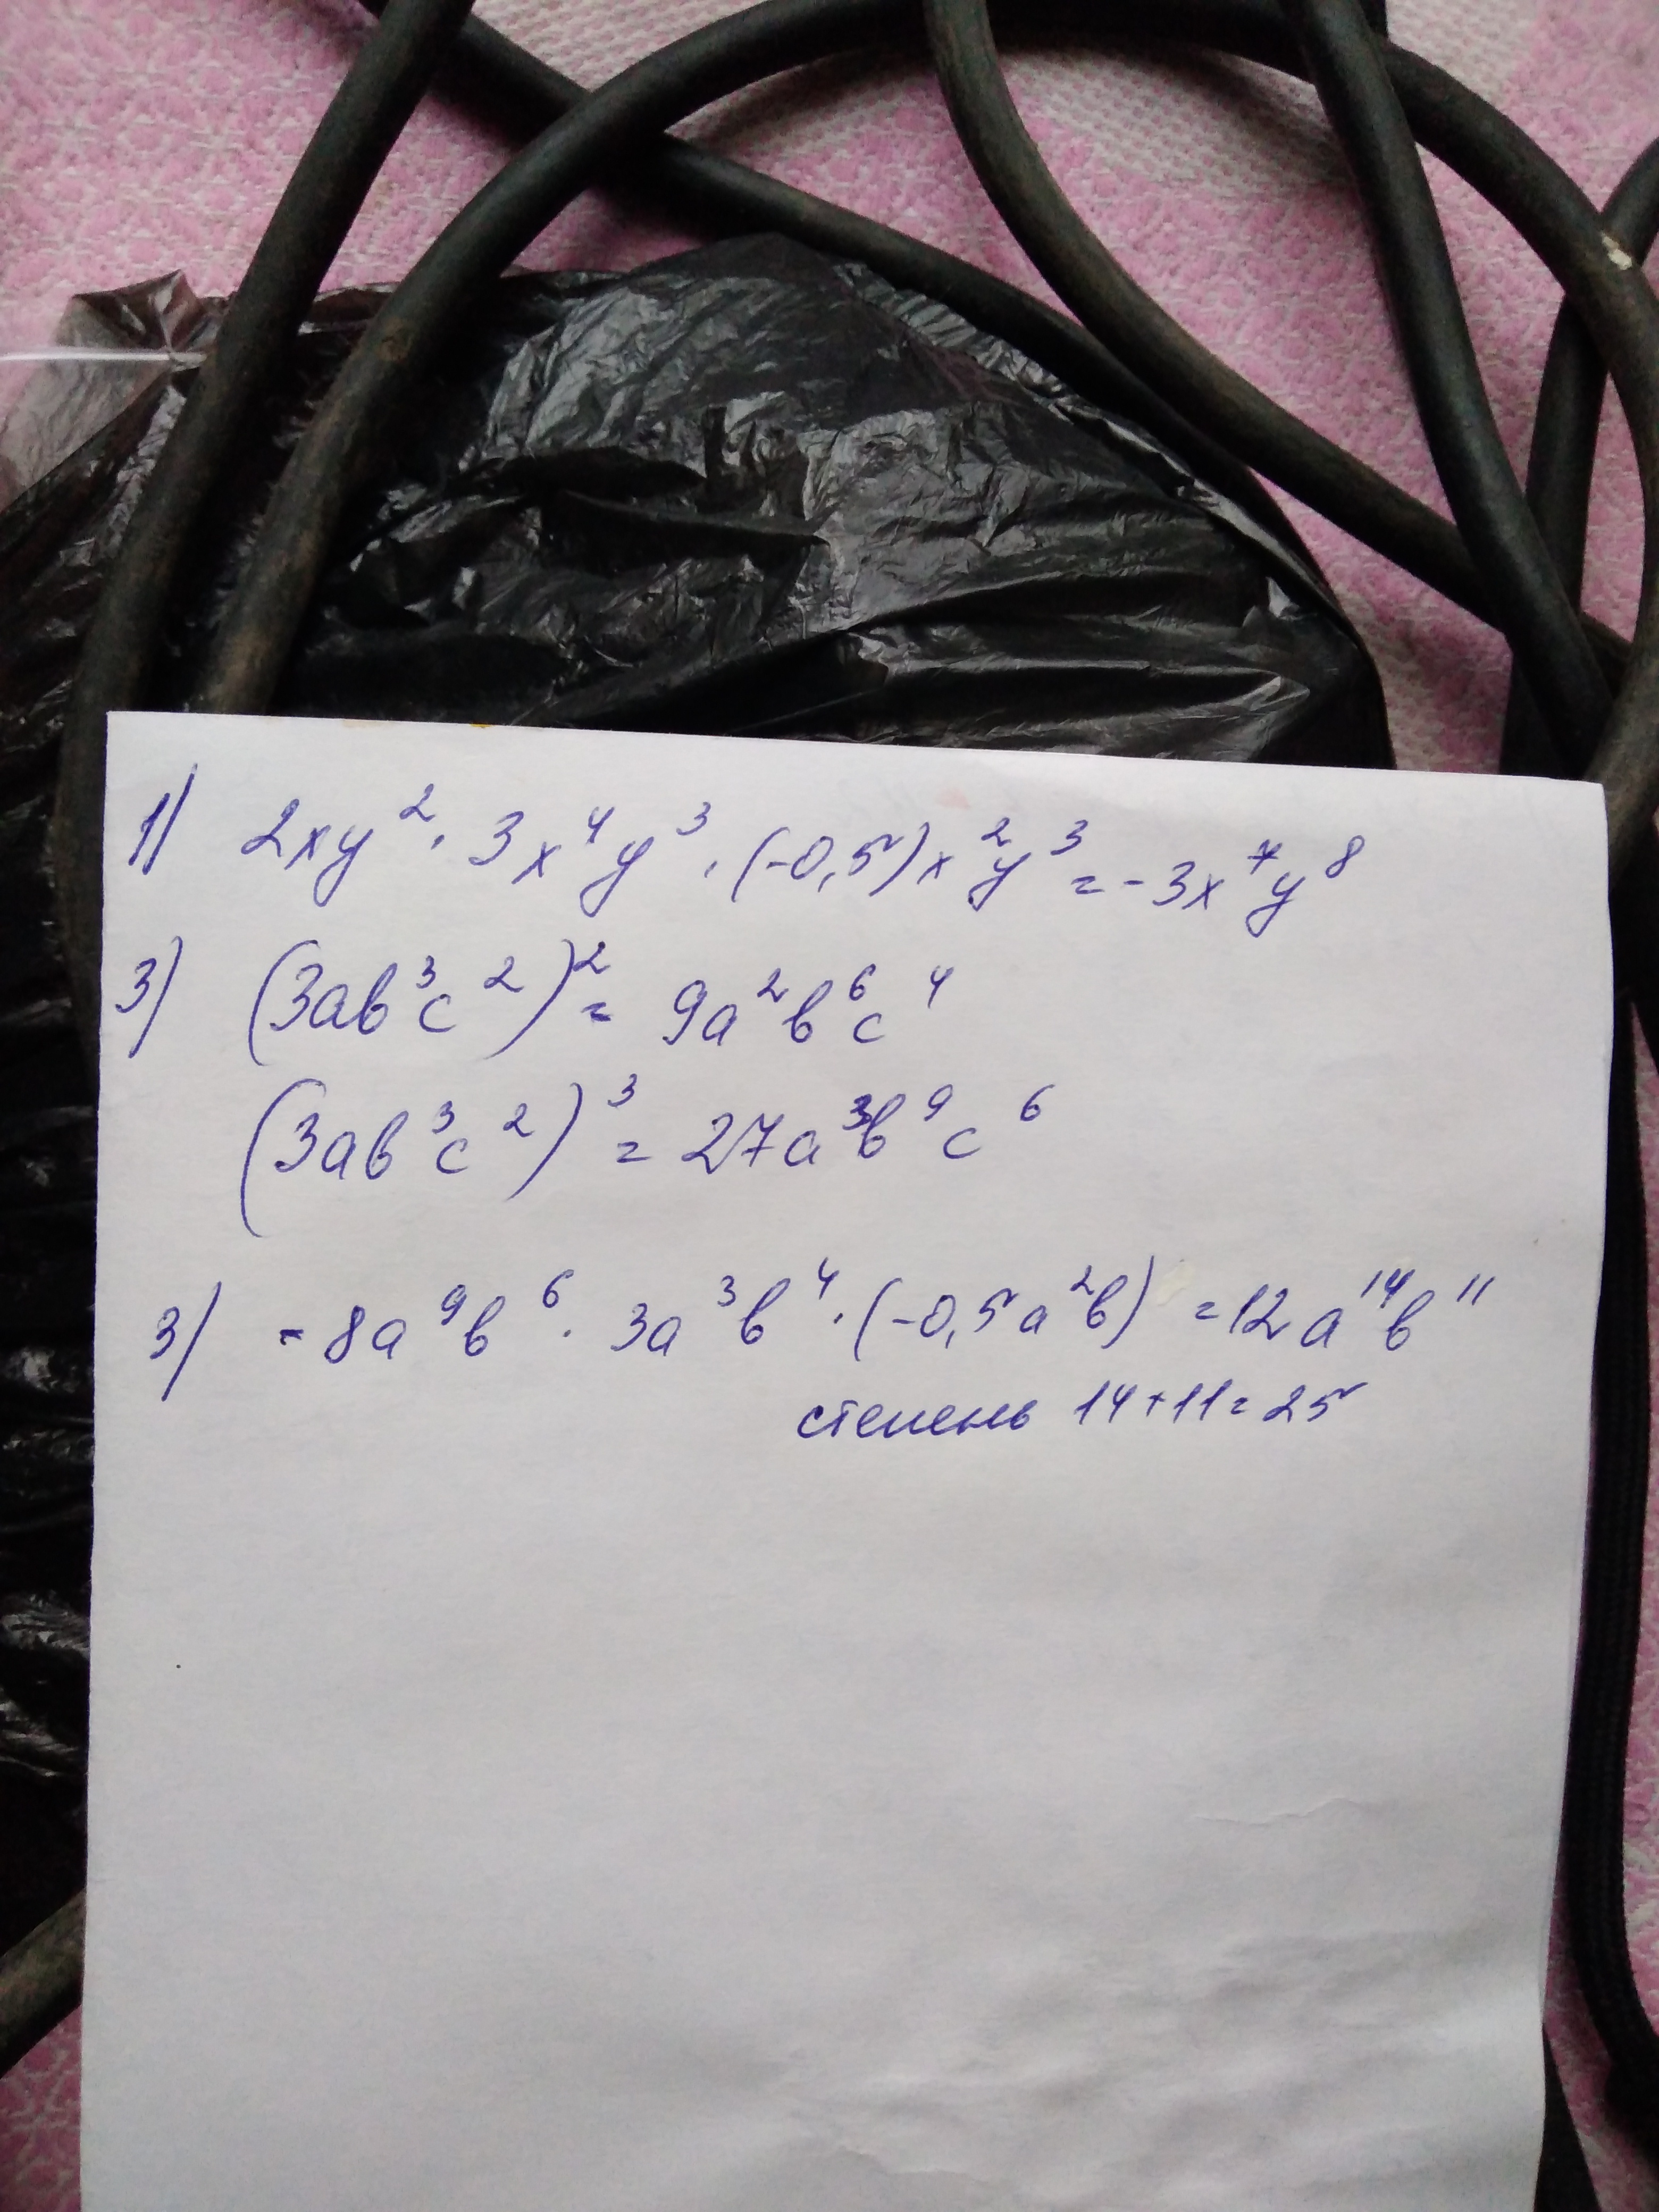 1) 2xy². 3x⁴y³. (-0,5)x²y³ = -3x⁷y⁸
3) (3ab³c²)² = 9a²b⁶c⁴
(3ab³c²)³ = 27a³b⁹c⁶
3) -8a⁹b⁶. 3a³b⁴. (-0,5a²b) = 12a¹⁴b¹¹
степень 14+11=25